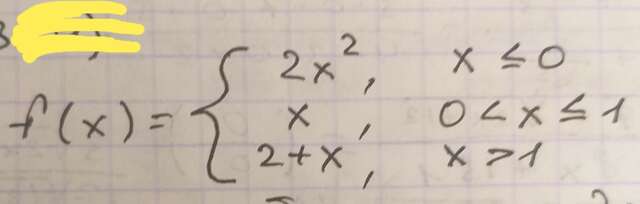 f(x) = { 2x², x ≤ 0
x, 0 < x ≤ 1
2+x, x > 1